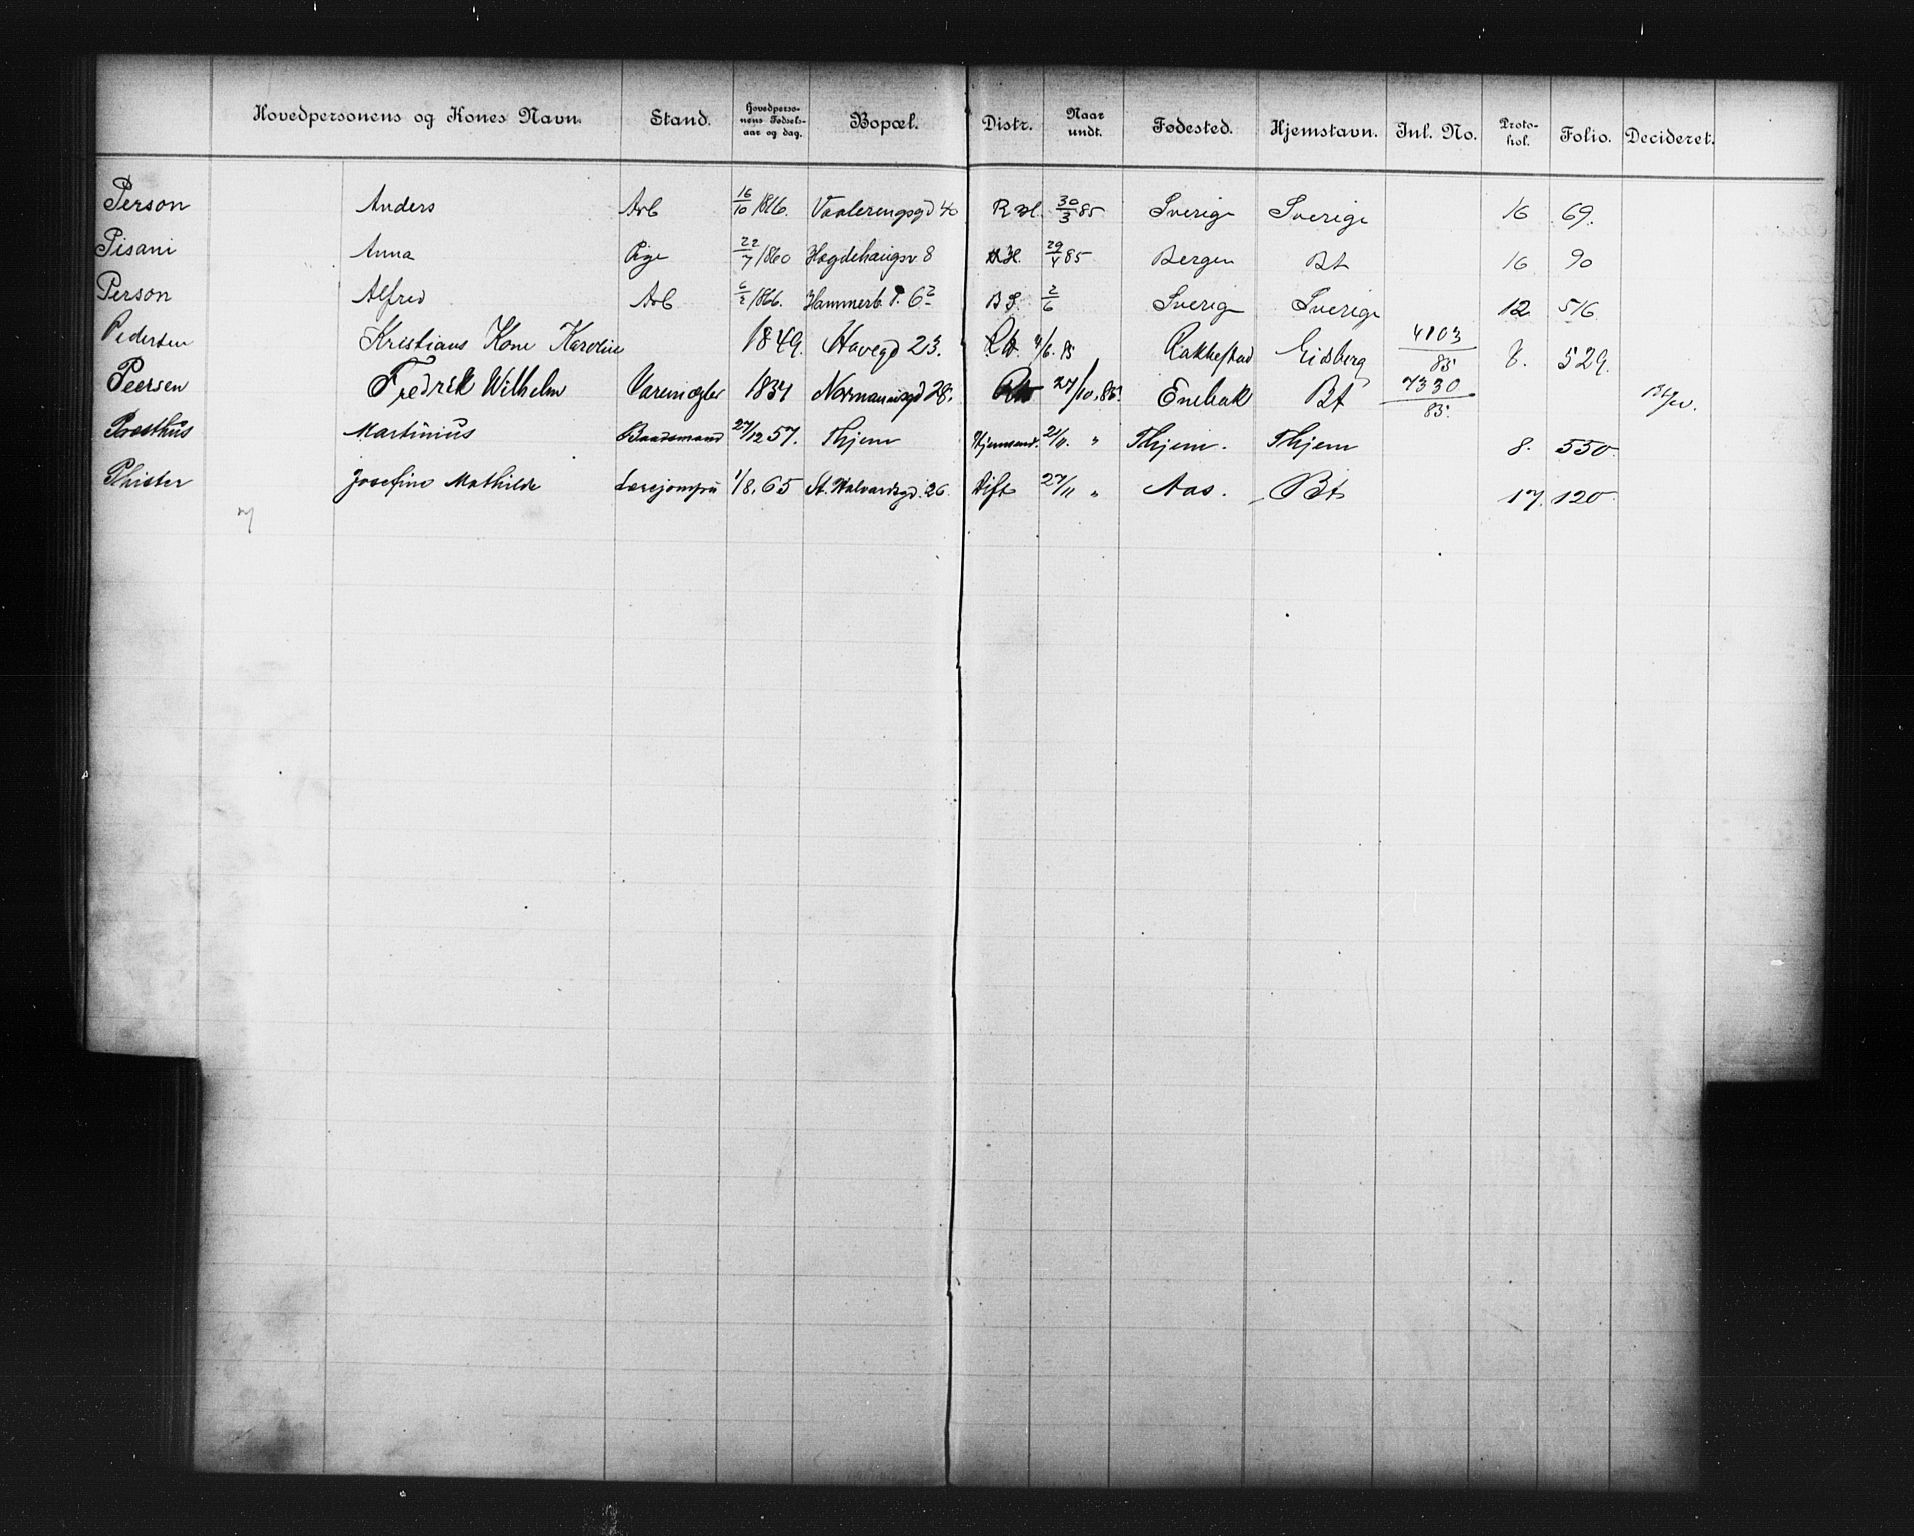 Hovedpersonens og Kones Navn. Stand. Hovedpersonens Fødselsaar og dag. Bopæl. Distr. Naar undt. Fødested. Hjemstavn. Inl. No. Protokol. Folio. Decideret.
Person Anders Arb 16/10 1866. Vaalerengsgd 40 30/3 85 Sverige Sverige 16 69.
Pisani Anna Pige 22/7 1860 Hægdehaugsv 8 29/4 85 Bergen Bt 16 90
Person Alfred Arb 6/2 1866. Hammerb. P. 6 2/6 Sverige Sverige 12 516
Pedersen Kristians Kone Karoline 1849. Havegd 23. Rakkestad Eidsberg 4103/85 8. 529.
Peersen Fredrik Wilhelm Varemægler 1834 Normannsgd 28. 27/10. 85. Enebak Bt 7330/85.
Præsthus Martinius Baadsmand 27/12 57. Thjem 21/11. " Thjem. Thjem 8. 550.
Phister Josefine Mathilde Lærejomfru 1/8. 65 St. Halvardsgd. 26 Stift 27/11 " Aas. Bt 17. 120.